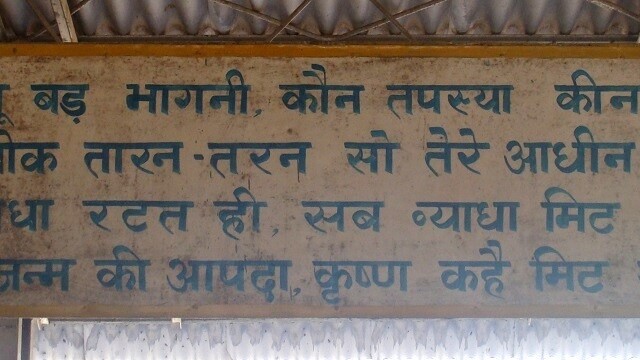 बड़ भागनी, कौन तपस्या कीन
तारन-तरन सो तैरे आधीन
रटत ही, सब व्याधा मिट
जन्म की आपदा, कृष्ण कहै मिट